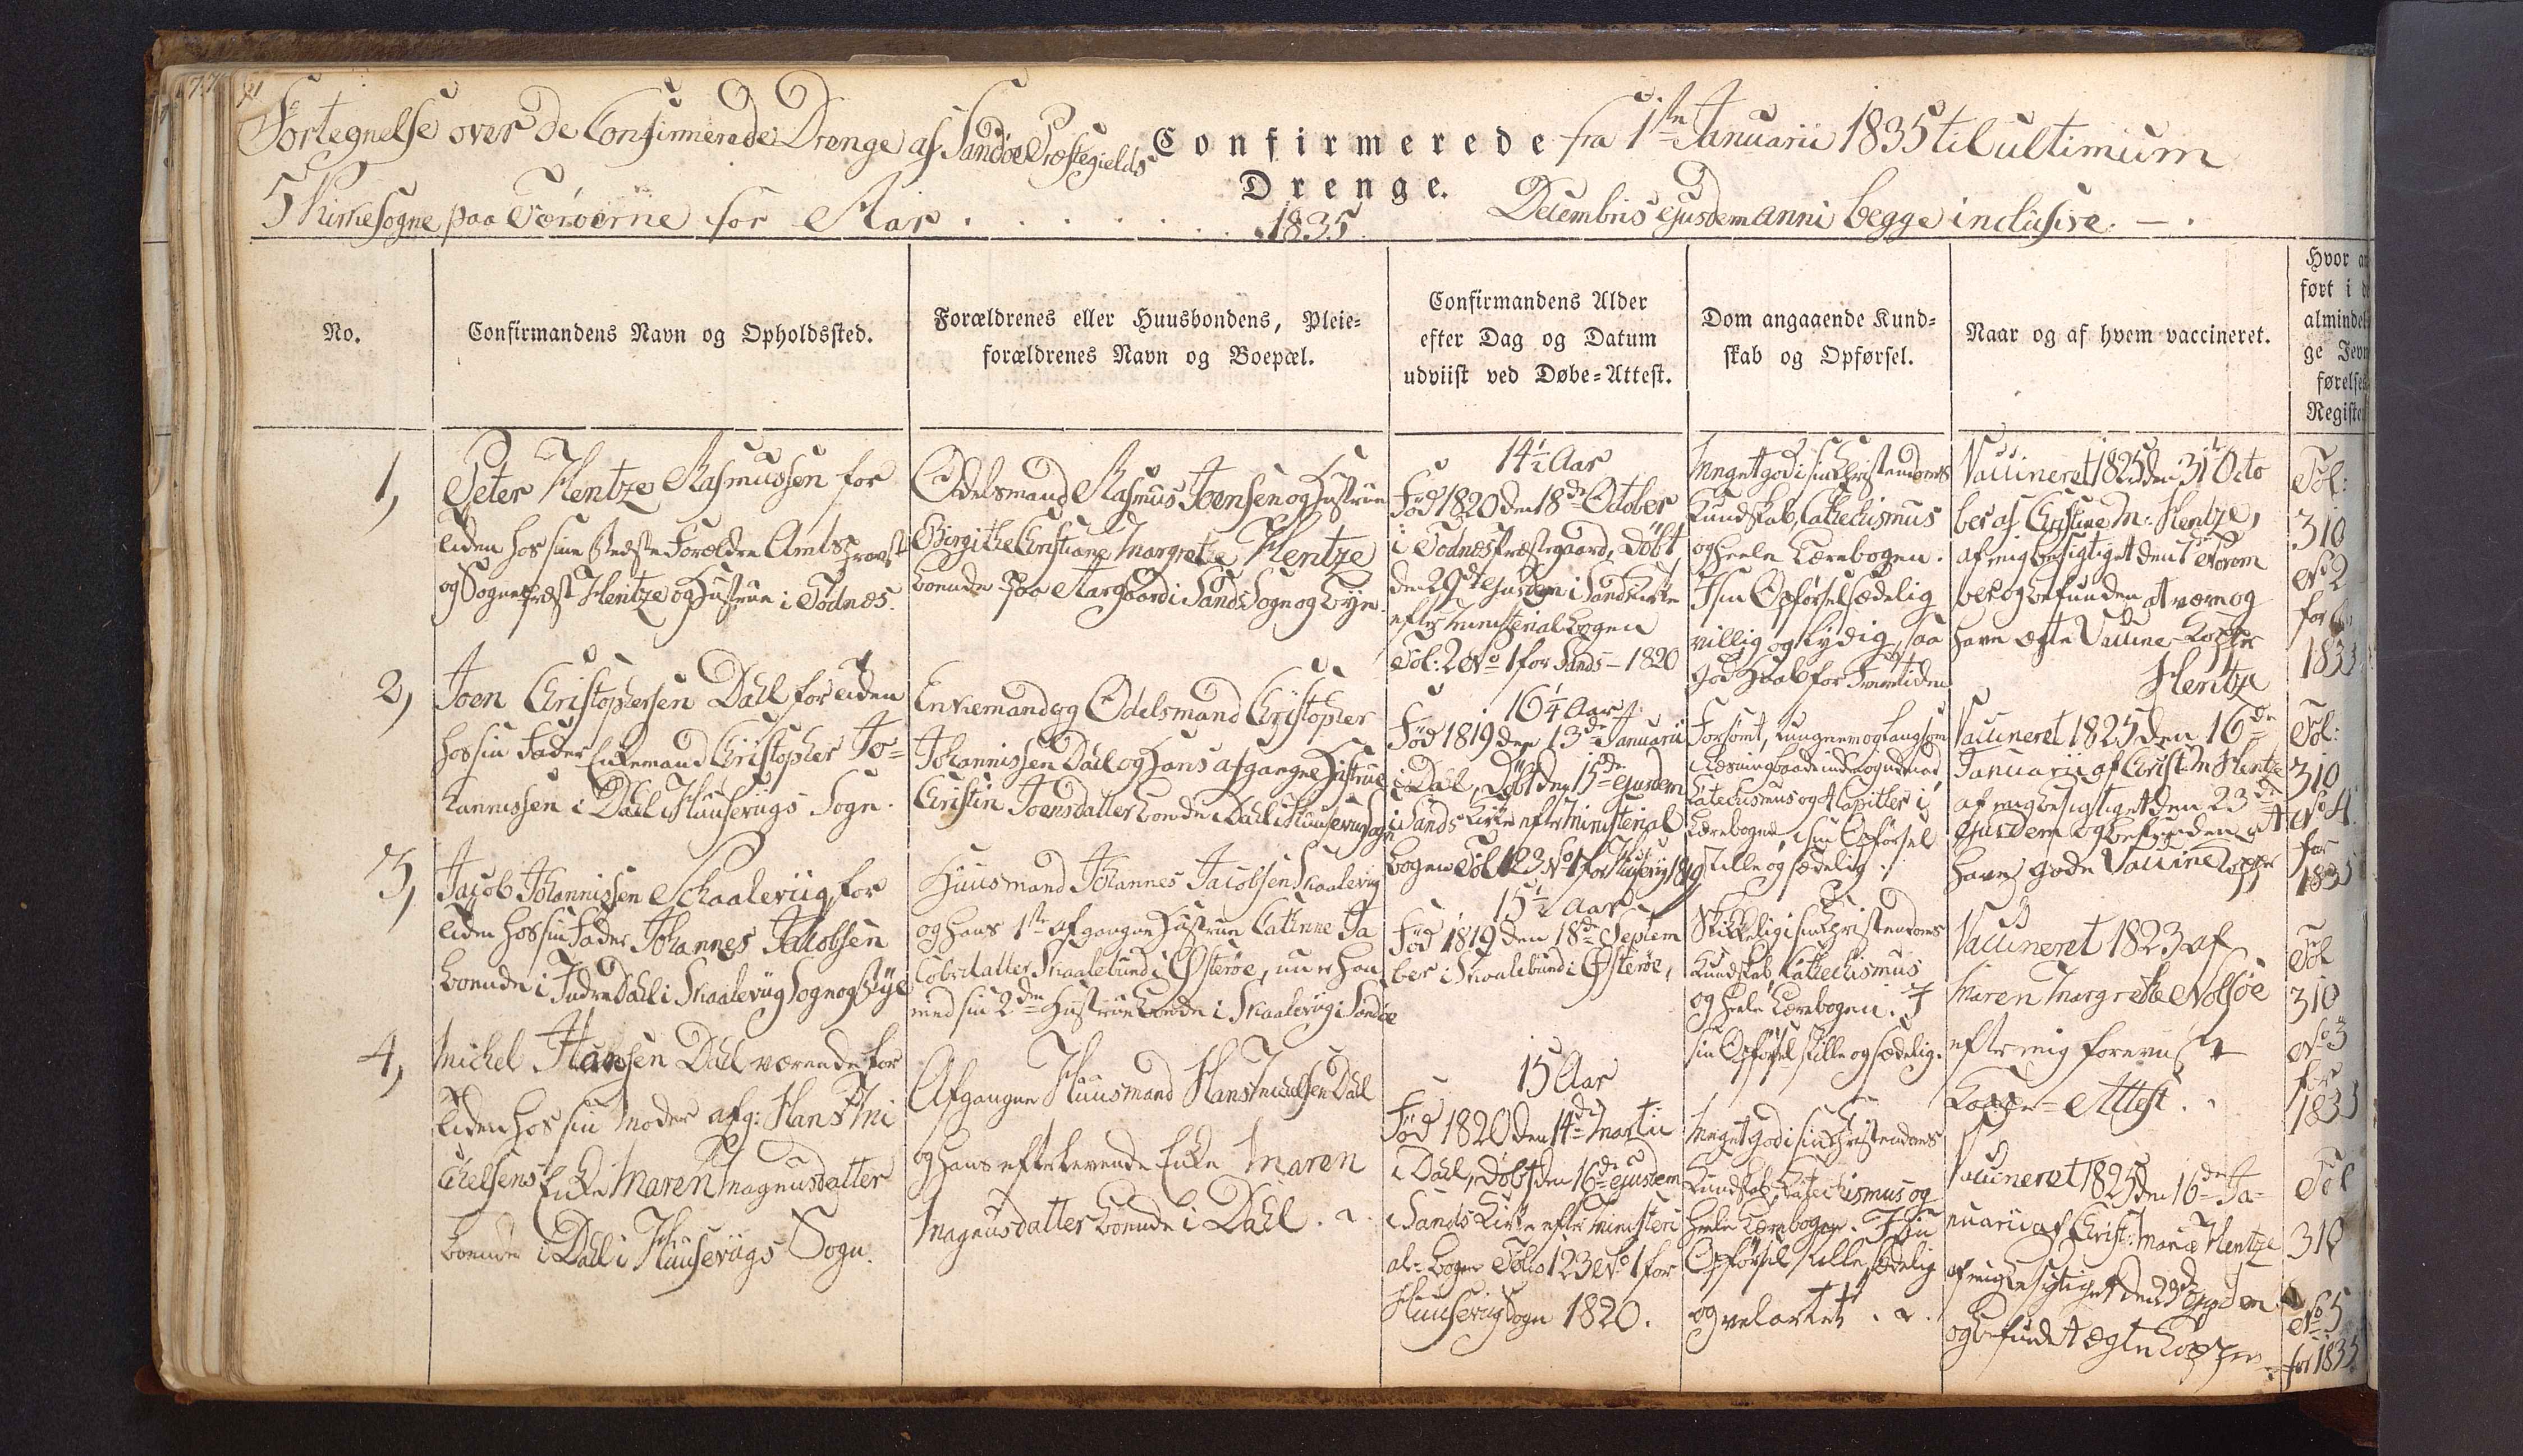 Fortegnelse over de Confirmerede Drenge af Sandøe Præstegields
5 Kirkesogne paa Færøerne for Aar . . . . . . . 1835
Confirmerede
Drenge.
fra 1ste Januarii 1835 til ultimum
Decembris ejusdem anni begge inclusive. — .
No.
Confirmandens Navn og Opholdssted.
Forældrenes eller Huusbondens, Pleie-
forældrenes Navn og Boepæl.
Confirmandens Alder
efter Dag og Datum
udviist ved Døbe-Attest.
Dom angaaende Kund-
skab og Opførsel.
Naar og af hvem vaccineret.
Hvor an
ført i d
almindel
ge Jevn
førelses
Registe
1,
Peter Hentze Rasmussen for
tiden hos sine Bedste Forældre Amtsprovst
og Sognepræst Hentze og Hustrue i Todnes.
Odelsmand Rasmus Joensen og Hustrue
Birgithe Christiane Margrete Hentze
boende paa Aargaard i Sands Sogn og Bye.
14½ Aar
Fød 1820 den 18de October
i Todnes Præstegaard, Döbt
den 29de ejusdem i Sands Kirke
efter Ministerialbogen
Fol: 2 No 1 for Sands - 1820
Meget god i sin Christendoms
Kundskab, Cathechismus
og heele Lærebogen.
I sin Opførsel sædelig
villig og lydig, saa
god Haab for Fremtiden
Vaccineret 1825 den 31te Octo
ber af Christine M: Hentze,
af mig besigtiget den 7de Novem
ber og befunden at være og
have ægte Vaccine-Kopper
Hentze
Fol:
310
No 2
for
1835
2,
Joen Christophersen Dahl for tiden
hos sin Fader Enkemand Christopher Jo-
hannissen i Dahl i Huuseviigs Sogn.
Enkemand og Odelsmand Christopher
Johannissen Dahl og Hans afgangne Hustrue
Christin Joensdatter boende i Dahl i Huusevigs Sogn
16¼ Aar
Fød 1819 den 13de Januarii
i Dahl, Döbt den 15de ejusdem
i Sands Kirke efter Ministerial
bogen Fol 123 No 1 for Husevig 1819
Forsömt, tungnem og langsom
i Læsning baade inden og udenad,
Catechismus og 4 Capitler i
Lærebogen, i sin Opførsel
stille og sædelig.
Vaccineret 1825 den 16de
Januarii af Christ: M Hentze
af mig besigtiget den 23de
ejusdem og befunden at
have gode Vaccine Kopper
Fol:
310
No 4.
for
1835
3,
Jacob Johannissen Schaaleviig for
tiden hos sin Fader Johannes Jacobsen
boende i Indre Dahl i Skaaleviig Sogn og Bye
Huusmand Johannes Jacobsen Skaalevig
og hans 1ste afgangne Hustrue Catrine Ja
cobsdatter Skaalebund i Østerøe, nu er han
med sin 2den Hustrue boende i Skaalevig i Sandøe
15½ Aar
Fød 1819 den 18de Septem
ber i Skaalebund i Østerøe,
Skikkelig i sin Christendoms
Kundskab, Cathechismus
og heele Lærebogen. I
sin Opførsel stille og sædelig.
Vaccineret 1823 af
Maren Margrethe Nolsøe
efter mig foreviist
Koppe-Attest . .
Fol
310
No 3
for
1835
4,
Michel Hansen Dahl værende for
tiden hos sin Moder afg: Hans Mi
chelsens Enke Maren Magnusdatter
boende i Dahl i Huuseviigs Sogn.
Afgangne Huusmand Hans Michelsen Dahl
og hans efterlevende Enke Maren
Magnusdatter boende i Dahl . .
15 Aar
Fød 1820 den 14de Martii
i Dahl, döbt den 16de ejusdem
i Sands Kirke efter Ministeri
al-bogen Folio 123 No 1 for
Huusevig Sogn 1820.
Meget god i sin Christendoms
Kundskab, Catechismus og
heele Lærebogen. I sin
Opførsel stille, sædelig
og velartet . .
Vaccineret 1825 den 16de Ja-
nuarii af Christ: Mariæ Hentze
af mig besigtiget den 23de ejusdem
og befundet ægte Kopper
Fol
310
No 5
for 1835